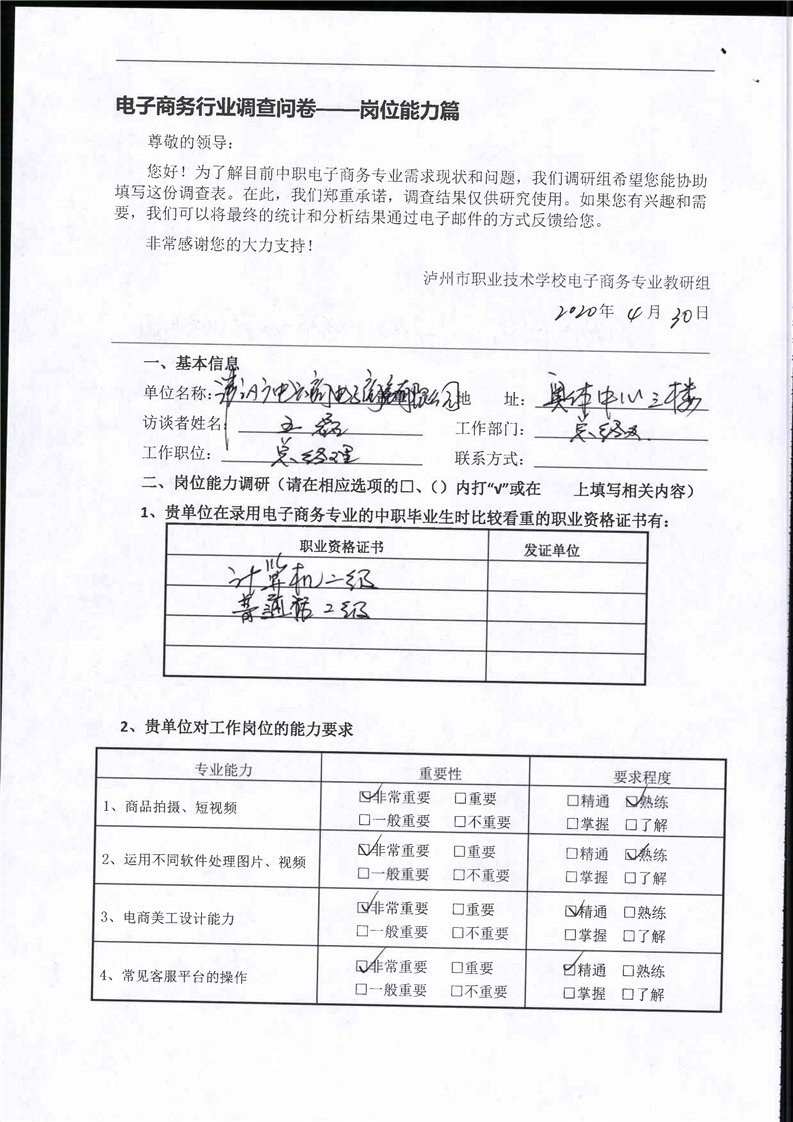 电子商务行业调查问卷——岗位能力篇
尊敬的领导：
您好！为了解目前中职电子商务专业需求现状和问题，我们调研组希望您能协助
填写这份调查表。在此，我们郑重承诺，调查结果仅供研究使用。如果您有兴趣和需
要，我们可以将最终的统计和分析结果通过电子邮件的方式反馈给您。
非常感谢您的大力支持！
泸州市职业技术学校电子商务专业教研组
2020年 4月 30日
一、基本信息
单位名称： 电子商务有限公司 地 址：奥体中心三楼
访谈者姓名： 王磊 工作部门： 总经办
工作职位： 总经理 联系方式：
二、岗位能力调研（请在相应选项的□、（）内打“√”或在 上填写相关内容）
1、贵单位在录用电子商务专业的中职毕业生时比较看重的职业资格证书有：
职业资格证书 发证单位
计算机二级
普通话2级
2、贵单位对工作岗位的能力要求
专业能力 重要性 要求程度
1、商品拍摄、短视频 ☑非常重要 □重要 □精通 ☑熟练
□一般重要 □不重要 □掌握 □了解
2、运用不同软件处理图片、视频 ☑非常重要 □重要 □精通 ☑熟练
□一般重要 □不重要 □掌握 □了解
3、电商美工设计能力 ☑非常重要 □重要 ☑精通 □熟练
□一般重要 □不重要 □掌握 □了解
4、常见客服平台的操作 ☑非常重要 □重要 ☑精通 □熟练
□一般重要 □不重要 □掌握 □了解